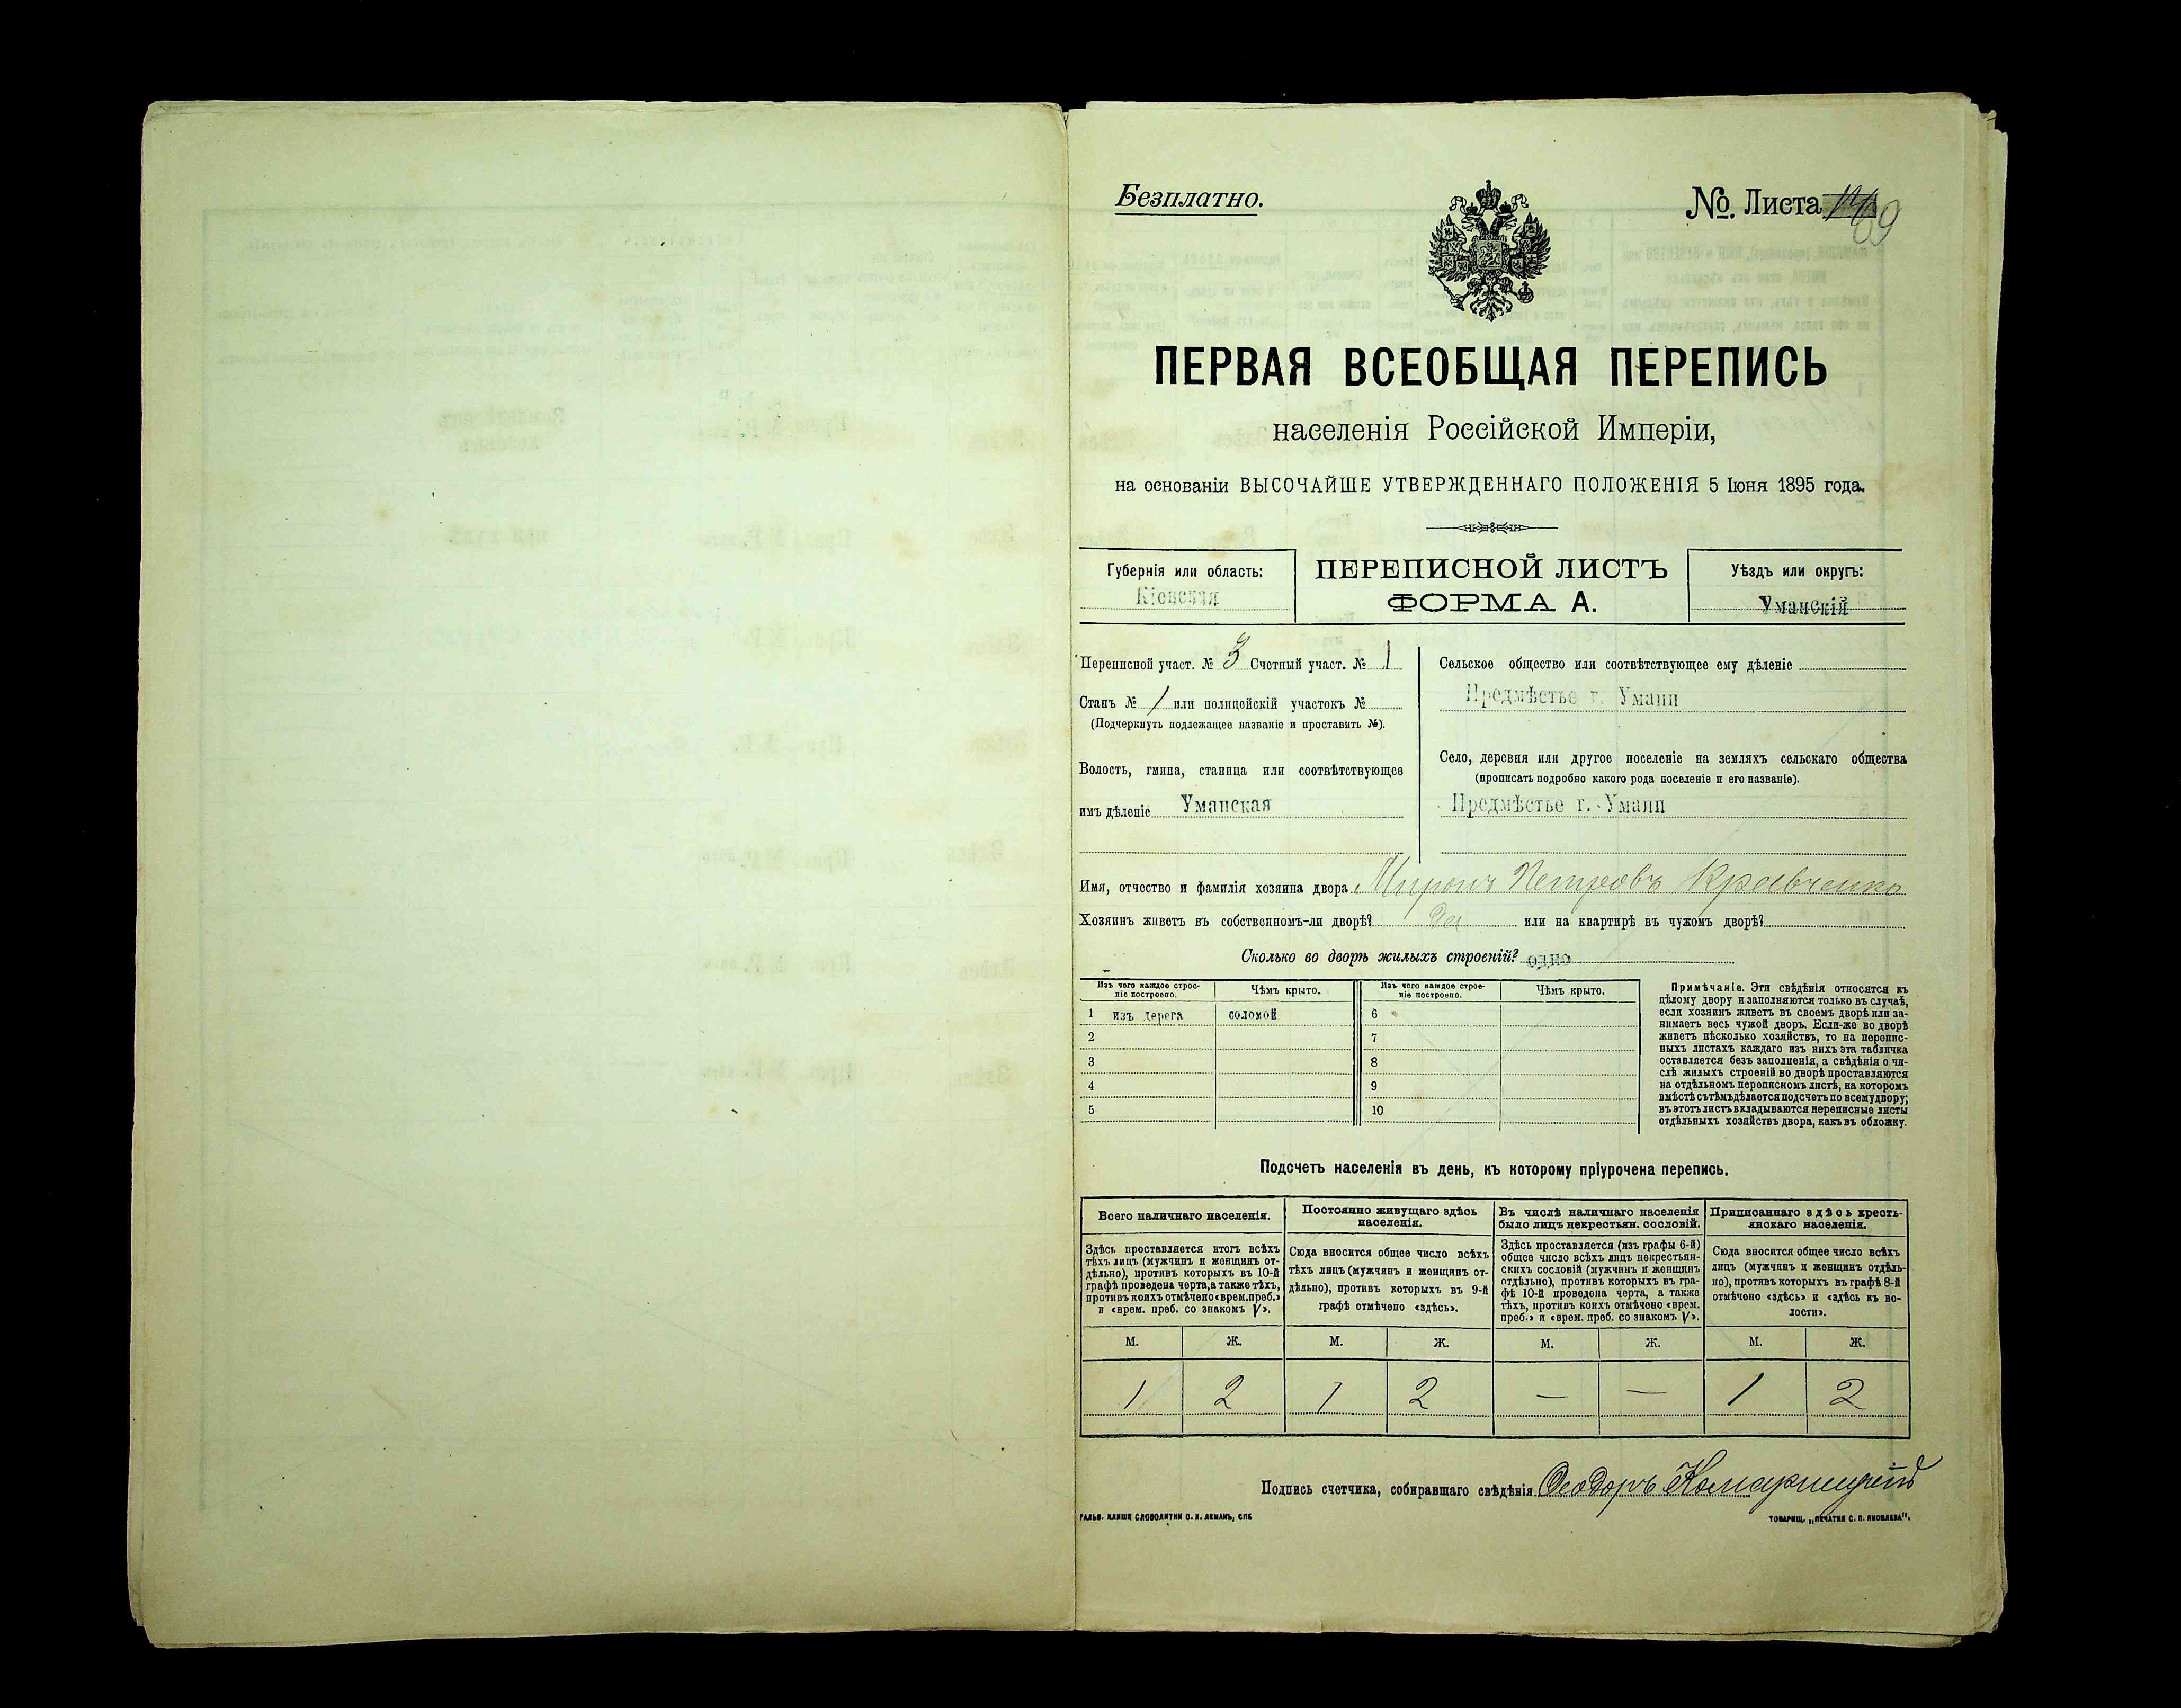 Безплатно.
№. Листа 69
ПЕРВАЯ ВСЕОБЩАЯ ПЕРЕПИСЬ
населенія Россійской Имперіи,
на основаніи ВЫСОЧАЙШЕ УТВЕРЖДЕННАГО ПОЛОЖЕНІЯ 5 Іюня 1895 года.
Губернія или область:
Кіевская
ПЕРЕПИСНОЙ ЛИСТЪ
ФОРМА А.
Уѣздъ или округъ:
Уманскій
Переписной участ. № 3 Счетный участ. № 1
Станъ № 1 или полицейскій участокъ №
(Подчеркнуть подлежащее названіе и проставить №).
Волость, гмина, станица или соотвѣтствующее
имъ дѣленіе Уманская
Сельское общество или соотвѣтствующее ему дѣленіе
Предмѣстье г. Умани
Село, деревня или другое поселеніе на земляхъ сельскаго общества
(прописать подробно какого рода поселеніе и его названіе).
Предмѣстье г. Умани
Имя, отчество и фамилія хозяина двора Миронъ Петровъ Кравченко
Хозяинъ живетъ въ собственномъ-ли дворѣ? Да или на квартирѣ въ чужомъ дворѣ?
Сколько во дворѣ жилыхъ строеній? одно
Изъ чего каждое строе-
ніе построено.
Чѣмъ крыто.
Изъ чего каждое строе-
ніе построено.
Чѣмъ крыто.
1 изъ дерева соломой 6
2 7
3 8
4 9
5 10
Примѣчаніе. Эти свѣдѣнія относятся къ
цѣлому двору и заполняются только въ случаѣ,
если хозяинъ живетъ въ своемъ дворѣ или за-
нимаетъ весь чужой дворъ. Если-же во дворѣ
живетъ нѣсколько хозяйствъ, то на перепис-
ныхъ листахъ каждаго изъ нихъ эта табличка
оставляется безъ заполненія, а свѣдѣнія о чи-
слѣ жилыхъ строеній во дворѣ проставляются
на отдѣльномъ переписномъ листѣ, на которомъ
вмѣстѣ съ тѣмъ дѣлается подсчетъ по всему двору;
въ этотъ листъ вкладываются переписные листы
отдѣльныхъ хозяйствъ двора, какъ въ обложку.
Подсчетъ населенія въ день, къ которому пріурочена перепись.
Всего наличнаго населенія.
Здѣсь проставляется итогъ всѣхъ
тѣхъ лицъ (мужчинъ и женщинъ от-
дѣльно), противъ которыхъ въ 10-й
графѣ проведена черта, а также тѣхъ,
противъ коихъ отмѣчено «врем. преб.»
и «врем. преб. со знакомъ V».
Постоянно живущаго здѣсь
населенія.
Сюда вносится общее число всѣхъ
тѣхъ лицъ (мужчинъ и женщинъ от-
дѣльно), противъ которыхъ въ 9-й
графѣ отмѣчено «здѣсь».
Въ числѣ наличнаго населенія
было лицъ некрестьян. сословій.
Здѣсь проставляется (изъ графы 6-й)
общее число всѣхъ лицъ некрестьян-
скихъ сословій (мужчинъ и женщинъ
отдѣльно), противъ которыхъ въ гра-
фѣ 10-й проведена черта, а также
тѣхъ, противъ коихъ отмѣчено «врем.
преб.» и «врем. преб. со знакомъ V».
Приписаннаго здѣсь кресть-
янскаго населенія.
Сюда вносится общее число всѣхъ
лицъ (мужчинъ и женщинъ отдѣль-
но), противъ которыхъ въ графѣ 8-й
отмѣчено «здѣсь» и «здѣсь къ во-
лости».
М. Ж. М. Ж. М. Ж. М. Ж.
1 2 1 2 — — 1 2
Подпись счетчика, собиравшаго свѣдѣнія Феодоръ Комарницкій
ГАЛЬВ. КЛИШЕ СЛОВОЛИТНИ О. И. ЛЕМАНЪ, СПБ
ТОВАРИЩ. „ПЕЧАТНЯ С. П. ЯКОВЛЕВА".